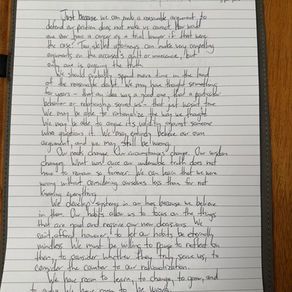 Just because we can make a reasonable argument to
defend a position does not make us correct. How could
one ever have a career as a trial lawyer if that were
the case? Two skilled attorneys can make very compelling
arguments on the accused's guilt or innocence, but
only one is arguing the truth.
We should probably spend more time in the land
of the reasonable doubt. We may have thought something
for years - that an idea was a good one, that a particular
behavior or relationship served us - that just wasn't true.
We may be able to rationalize the way we thought.
We may be able to argue its validity against someone
who questions it. We may entirely believe our own
argument, and we may still be wrong.
Our needs change. Our circumstances change. Our wisdom
changes. What was once an undeniable truth does not
have to remain so forever. We can learn that we were
wrong without considering ourselves less than for not
knowing everything.
We develop systems in our lives because we believe
in them. Our habits allow us to focus on the things
that are novel and require our new decisions. We
can't afford, however, to let our habits be eternally
mindless. We must be willing to pause to reflect on
them, to consider whether they truly serve us, to
consider the counter to our rationalization.
We have room to learn, to change, to grow, and
to
have room to be wrong.